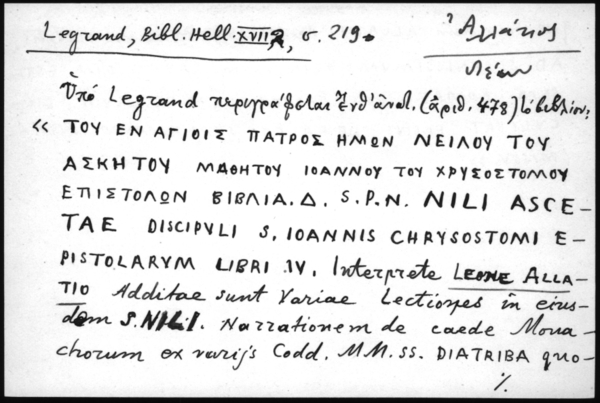 Legrand, Bibl. Hell. XVII 2, σ. 219.
Ἀλλάτιος
Λέων
Ὑπό Legrand περιγράφεται ἐνθ' ἀνωτ. (ἀριθ. 478) τό βιβλίον:
« ΤΟΥ ΕΝ ΑΓΙΟΙΣ ΠΑΤΡΟΣ ΗΜΩΝ ΝΕΙΛΟΥ ΤΟΥ
ΑΣΚΗΤΟΥ ΜΑΘΗΤΟΥ ΙΩΑΝΝΟΥ ΤΟΥ ΧΡΥΣΟΣΤΟΜΟΥ
ΕΠΙΣΤΟΛΩΝ ΒΙΒΛΙΑ. Δ. S. P. N. NILI ASCE-
TAE DISCIPVLI S. IOANNIS CHRYSOSTOMI E-
PISTOLARVM LIBRI IV. Interprete LEONE ALLA-
TIO Additae sunt Variae Lectiones in eius-
dem S. NILI. Narrationem de caede Mona-
chorum ex varijs Codd. MM.SS. DIATRIBA quo-
%